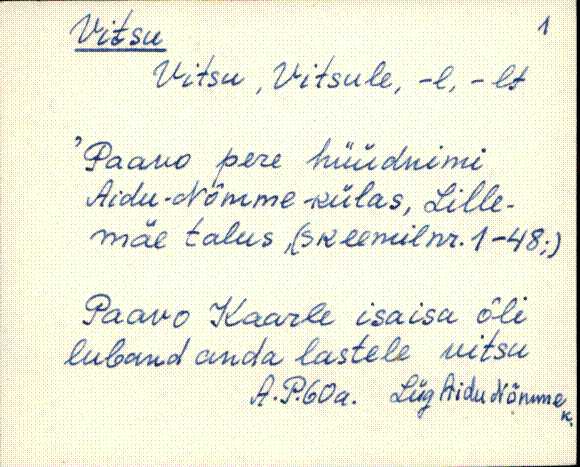 Vitsu 1
Vitsu, Vitsule, -l, -lt
'Paavo pere hüüdnimi
Aidu-Nõmme-külas, Lille-
mäe talus, (skeemil nr. 1-48;)
Paavo Kaarle isaisa õli
luband anda lastele vitsu
A.P. 60a. Lüg Aidu Nõmme
k.